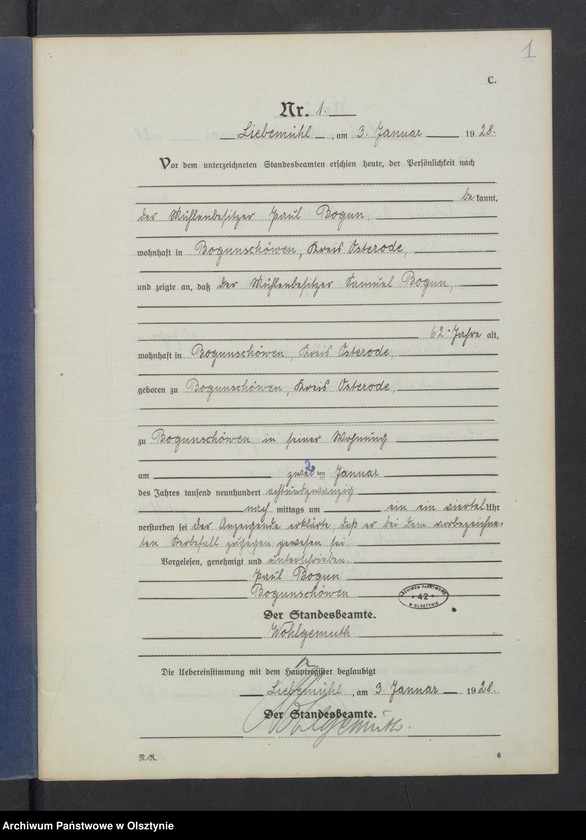 1
C.
Nr. 1.
Liebemühl, am 3. Januar 1928.
Vor dem unterzeichneten Standesbeamten erschien heute, der Persönlichkeit nach
be kannt,
der Mühlenbesitzer Paul Bogun,
wohnhaft in Bogunschöwen, Kreis Osterode,
und zeigte an, daß der Mühlenbesitzer Samuel Bogun,
62 Jahre alt,
wohnhaft in Bogunschöwen, Kreis Osterode,
geboren zu Bogunschöwen, Kreis Osterode,
zu Bogunschöwen in seiner Wohnung
am zweiten Januar
2
des Jahres tausend neunhundert achtundzwanzig
nach mittags um ein ein viertel Uhr
verstorben sei. Der Anzeigende erklärte, daß er bei dem vorbezeichne-
ten Sterbefall zugegen gewesen sei.
Vorgelesen, genehmigt und unterschrieben.
Paul Bogun
Bogunschöwen
ARCHIWUM PAŃSTWOWE
42
W OLSZTYNIE
Der Standesbeamte.
Wohlgemuth
Die Uebereinstimmung mit dem Hauptregister beglaubigt
Liebemühl, am 3. Januar 1928.
Der Standesbeamte.
Wohlgemuth.
N.-N.
6
Archiwum Państwowe w Olsztynie